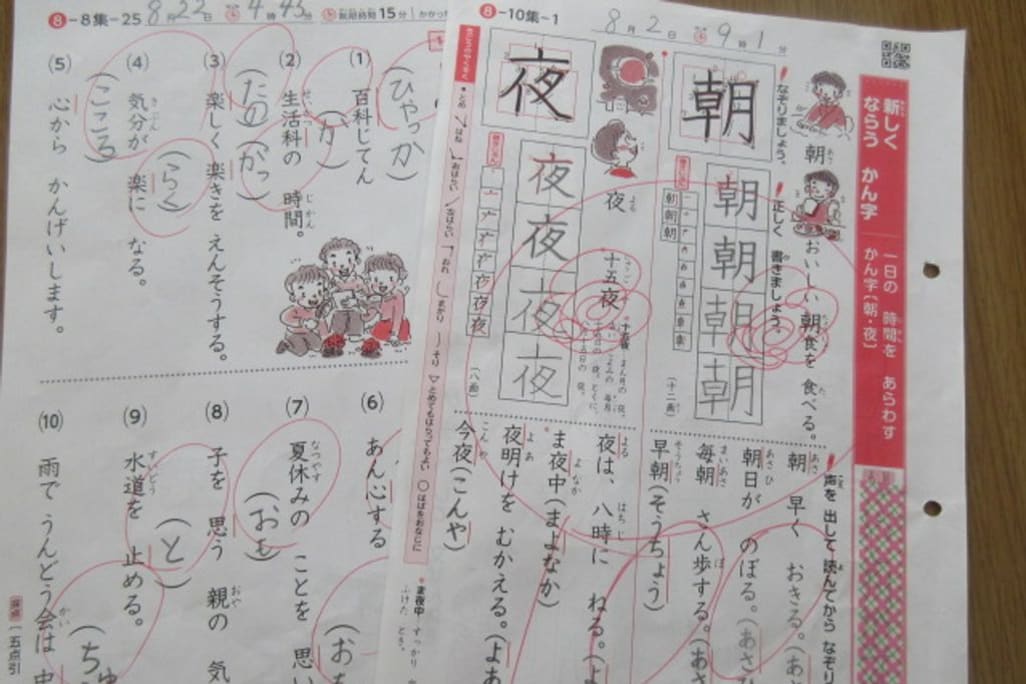 8-10集-1
8月2日 9時1分
新しく ならう かん字
一日の 時間を あらわす かん字〔朝・夜〕
なぞりましょう。
朝
朝
正しく 書きましょう。
朝
朝
朝
朝
(十二画)
おいしい 朝食を 食べる。
夜
夜
夜
夜
夜
夜
(八画)
十五夜
声を 出して 読んでから なぞり
朝 早く おきる。(あ
朝日が のぼる。(あさ
毎朝 さん歩する。(あさ
早朝(そうちょう)
夜は、八時に ねる。(よ
ま夜中(まよなか)
夜明けを むかえる。(よあ
今夜(こんや)
8-8集-25
8月22日 4時45分
制限時間15分
(1) 百科じてん (ひゃっか)
(2) 生活科の 時間。 (か)
(3) 楽しく 楽きを えんそうする。 (たの) (がっ)
(4) 気分が 楽に なる。 (らく)
(5) 心から かんげいします。 (こころ)
(6) あん心する
(7) 夏休みの ことを 思い (おも)
(8) 子を 思う 親の 気
(9) 水道を 止める。 (と)
(10) 雨で うんどう会は 中
一五点引